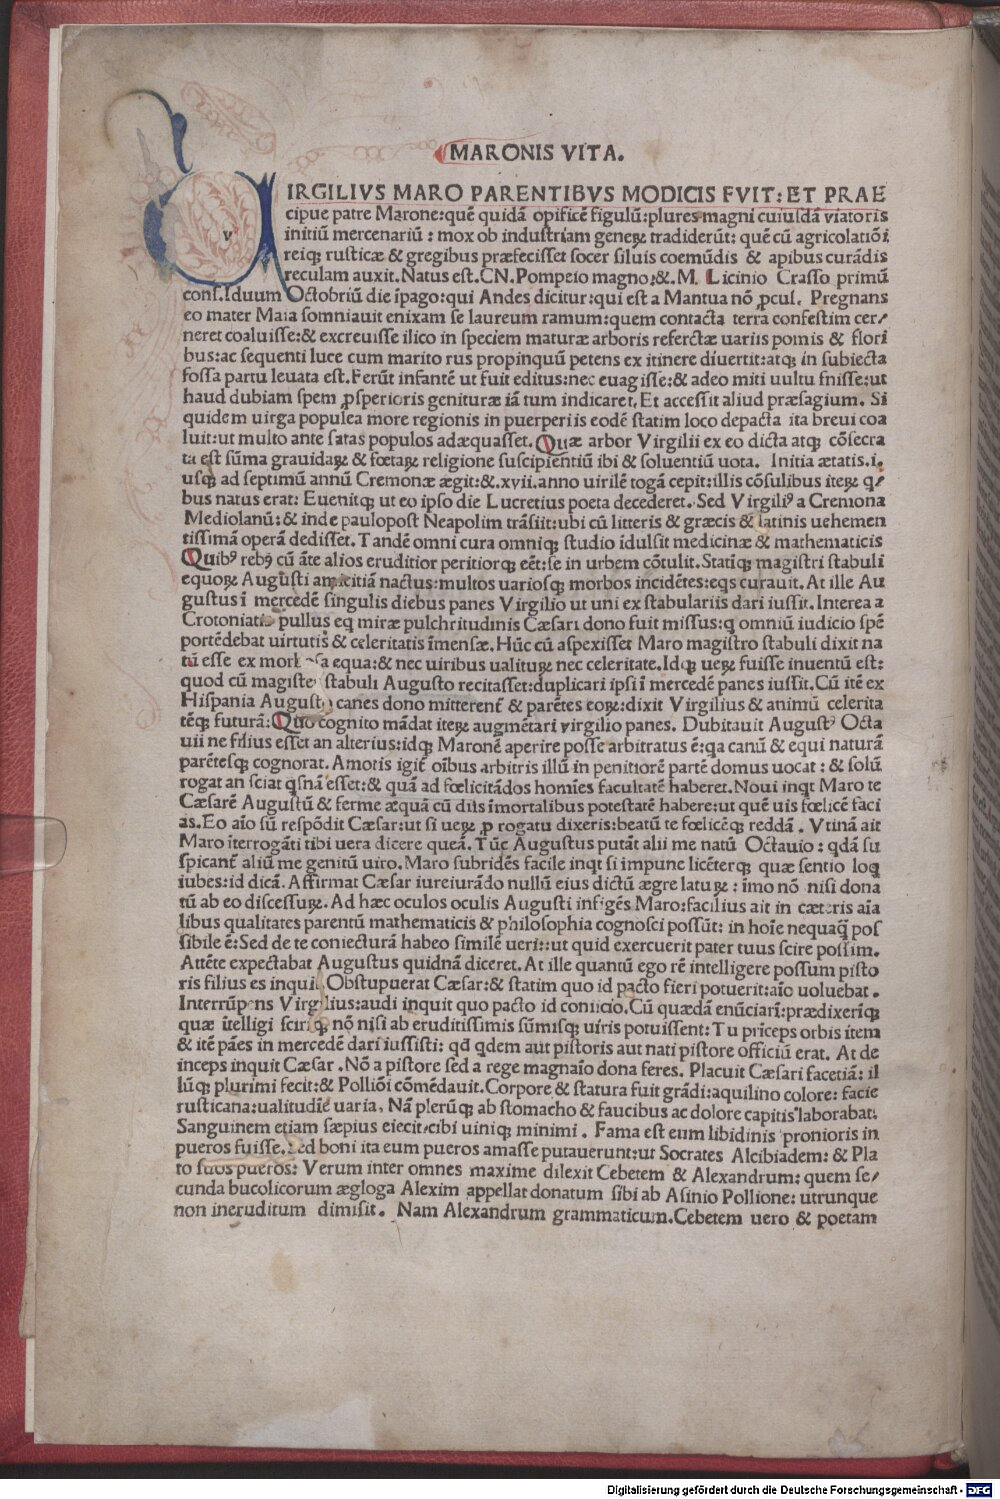 MARONIS VITA.
VIRGILIVS MARO PARENTIBVS MODICIS FVIT: ET PRAE
cipue patre Marone: quē quidā opificē figulū: plures magni cuiusdā viatoris
initiū mercenariū: mox ob industriam geneꝝ tradiderūt: quē cū agricolatiōi
reiq; rusticæ & gregibus præfecisset socer siluis coemūdis & apibus curādis
reculam auxit. Natus est. CN. Pompeio magno: &. M. Licinio Crasso primū
cons. Iduum Octobriū die ī pago: qui Andes dicitur: qui est a Mantua nō ꝓcul. Pregnans
eo mater Maia somniauit enixam se laureum ramum: quem contacta terra confestim cer/
neret coaluisse: & excreuisse ilico in speciem maturæ arboris refertæ uariis pomis & flori
bus: ac sequenti luce cum marito rus propinquū petens ex itinere diuertit: atq; in subiecta
fossa partu leuata est. Ferūt infantē ut fuit editus: nec euagisse: & adeo miti uultu fnisse: ut
haud dubiam spem ꝓsperioris genituræ iā tum indicaret. Et accessit aliud præsagium. Si
quidem uirga populea more regionis in puerperiis eodē statim loco depacta ita breui coa
luit: ut multo ante satas populos adæquasset. Quæ arbor Virgilii ex eo dicta atq; cōsecra
ta est sūma grauidaꝝ & fœtaꝝ religione suscipientiū ibi & soluentiū uota. Initia ætatis. i.
usq; ad septimū annū Cremonæ ægit: &. xvii. anno uirilē togā cepit: illis cōsulibus iteꝝ q/
bus natus erat: Euenitq; ut eo ipso die Lucretius poeta decederet. Sed Virgiliꝰ a Cremona
Mediolanū: & inde paulopost Neapolim trāsiit: ubi cū litteris & græcis & latinis uehemen
tissimā operā dedisset. Tandē omni cura omniq; studio īdulsit medicinæ & mathematicis
Quibꝰ rebꝰ cū āte alios eruditior peritiorq; eēt: se in urbem cōtulit. Statīq; magistri stabuli
equoꝝ Augusti amicitiā nactus: multos uariosq; morbos incidētes: eqs curauit. At ille Au
gustus ī mercedē singulis diebus panes Virgilio ut uni ex stabulariis dari iussit. Interea a
Crotoniatis pullus eq miræ pulchritudinis Cæsari dono fuit missus: q omniū iudicio spē
portēdebat uirtutis & celeritatis īmensæ. Hūc cū aspexisset Maro magistro stabuli dixit na
tū esse ex morbosa equa: & nec uiribus ualituꝝ nec celeritate. Idq; ueꝝ fuisse inuentū est:
quod cū magister stabuli Augusto recitasset: duplicari ipsi ī mercedē panes iussit. Cū itē ex
Hispania Augusto canes dono mitterent̄ & parētes eoꝝ: dixit Virgilius & animū celerita
tēq; futurā: Quo cognito mādat iteꝝ augmētari virgilio panes. Dubitauit Augustꝰ Octa
uii ne filius esset an alterius: idq; Maronē aperire posse arbitratus ē: qa canū & equi naturā
parētesq; cognorat. Amotis igit̄ oībus arbitris illū in penitiorē partē domus uocat: & solū
rogat an sciat qsnā esset: & quā ad fœlicitādos homīes facultatē haberet. Noui inqt Maro te
Cæsarē Augustū & ferme æquā cū diis īmortalibus potestatē habere: ut quē uis fœlicē faci
as. Eo aīo sū respōdit Cæsar: ut si ueꝝ ꝓ rogatu dixeris: beatū te fœlicēq; reddā. Vtinā ait
Maro īterrogāti tibi uera dicere queā. Tūc Augustus putāt alii me natū Octauio: qdā su
spicant̄ aliū me genitū uiro. Maro subridēs facile inqt si impune licēterq; quæ sentio loq
iubes: id dicā. Affirmat Cæsar iureiurādo nullū eius dictū ægre latuꝝ: īmo nō nisi dona
tū ab eo discessuꝝ. Ad hæc oculos oculis Augusti infigēs Maro: facilius ait in cæteris aīa
libus qualitates parentū mathematicis & philosophia cognosci possūt: in hoīe nequaq̄ pos
sibile ē: Sed de te coniecturā habeo similē ueri: ut quid exercuerit pater tuus scire possim.
Attēte expectabat Augustus quidnā diceret. At ille quantū ego rē intelligere possum pisto
ris filius es inquit. Obstupuerat Cæsar: & statim quo id pacto fieri potuerit: aīo uoluebat.
Interrūpens Virgilius: audi inquit quo pacto id coniicio. Cū quædā enūciarī: prædixerīq;
quæ ītelligi scirīq; nō nisi ab eruditissimis sūmisq; uiris potuissent: Tu prīceps orbis item
& itē pāes in mercedē dari iussisti: qd̄ qdem aut pistoris aut nati pistore officiū erat. At de
inceps inquit Cæsar. Nō a pistore sed a rege magnaīo dona feres. Placuit Cæsari facetiā: il
lūq; plurimi fecit: & Polliōi cōmēdauit. Corpore & statura fuit grādi: aquilino colore: facie
rusticana: ualitudīe uaria, Nā plerūq; ab stomacho & faucibus ac dolore capitis laborabat:
Sanguinem etiam sæpius eiecit: cibi uiniq; minimi. Fama est eum libidinis pronioris in
pueros fuisse. Sed boni ita eum pueros amasse putauerunt: ut Socrates Alcibiadem: & Pla
to suos pueros: Verum inter omnes maxime dilexit Cebetem & Alexandrum: quem se/
cunda bucolicorum ægloga Alexim appellat donatum sibi ab Asinio Pollione: utrunque
non ineruditum dimisit. Nam Alexandrum grammaticum. Cebetem uero & poetam
Digitalisierung gefördert durch die Deutsche Forschungsgemeinschaft - DFG